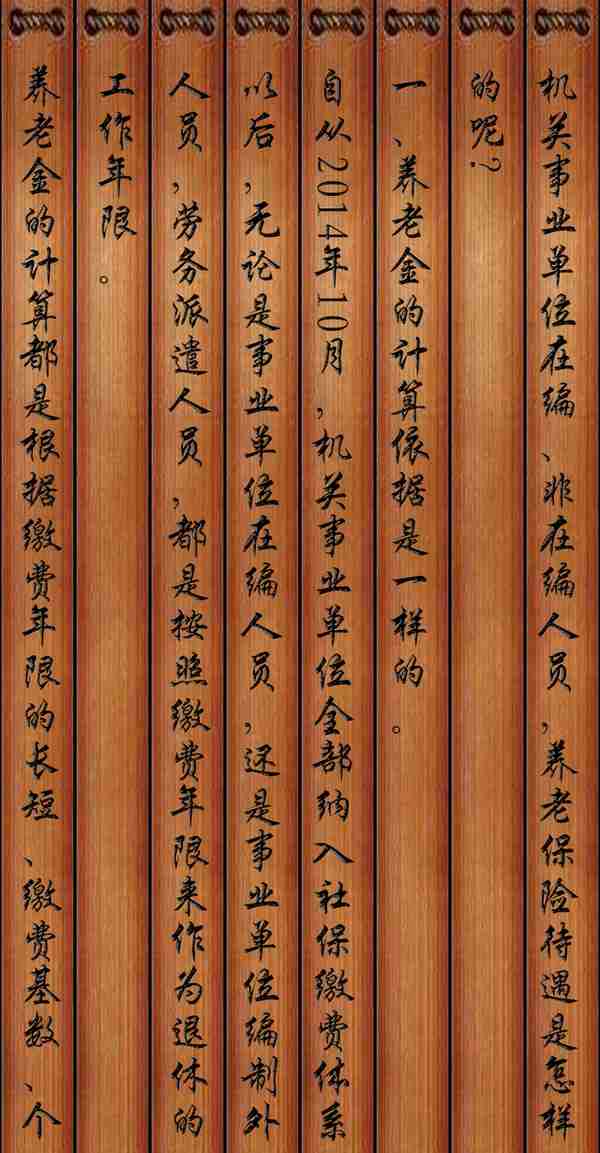 机关事业单位在编、非在编人员,养老保险待遇是怎样
的呢?
一、养老金的计算依据是一样的。
自从2014年10月,机关事业单位全部纳入社保缴费体系
以后,无论是事业单位在编人员,还是事业单位编制外
人员,劳务派遣人员,都是按照缴费年限来作为退休的
工作年限。
养老金的计算都是根据缴费年限的长短、缴费基数、个